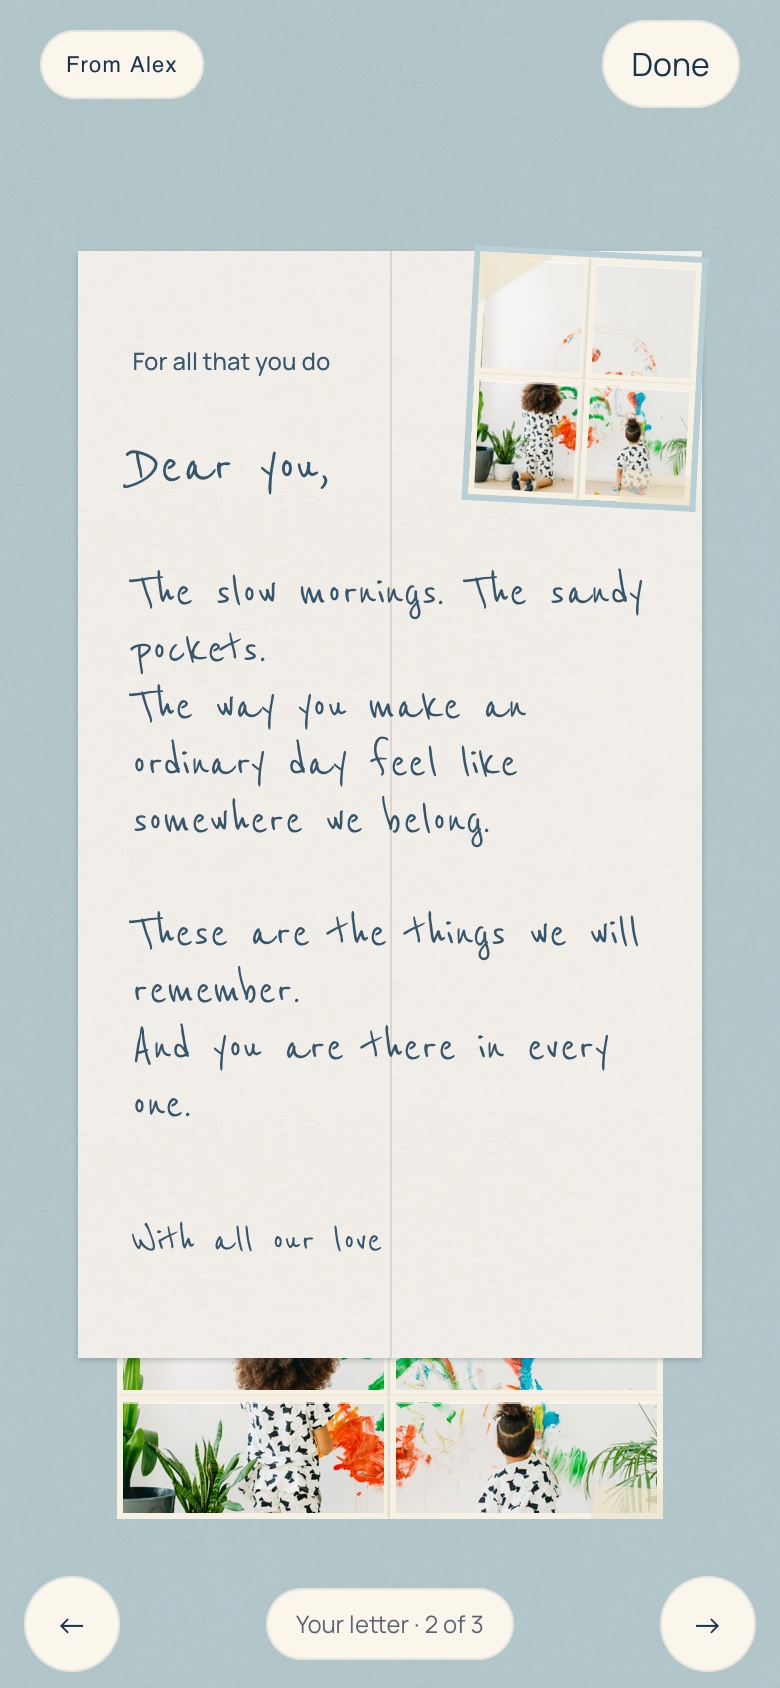 From Alex
Done
For all that you do
Dear you,
The slow mornings. The sandy
pockets.
The way you make an
ordinary day feel like
somewhere we belong.
These are the things we will
remember.
And you are there in every
one.
With all our love
←
Your letter · 2 of 3
→